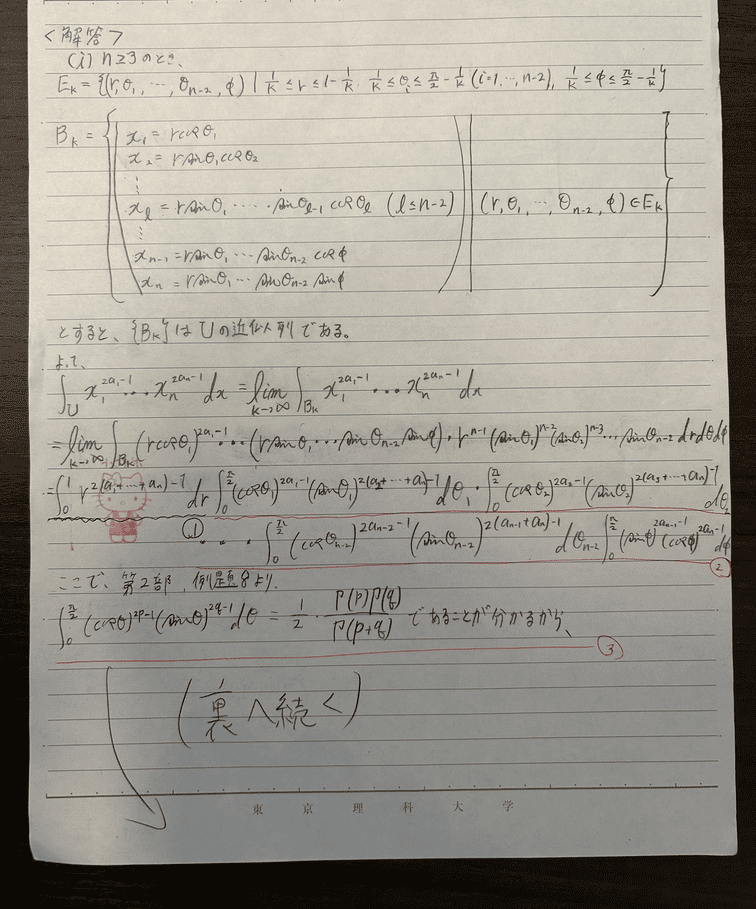 <解答>
(i) n≧3のとき、
E_k = {(r, θ_1, …, θ_{n-2}, φ) | 1/k ≤ r ≤ 1-1/k, 1/k ≤ θ_i ≤ π/2 - 1/k (i=1, …, n-2), 1/k ≤ φ ≤ π/2 - 1/k}
B_k = { ( x_1 = r cosθ_1
x_2 = r sinθ_1 cosθ_2
⋮
x_l = r sinθ_1 ⋯⋯ sinθ_{l-1} cosθ_l (l ≤ n-2) | (r, θ_1, …, θ_{n-2}, φ) ∈ E_k }
⋮
x_{n-1} = r sinθ_1 ⋯ sinθ_{n-2} cosφ
x_n = r sinθ_1 ⋯ sinθ_{n-2} sinφ )
とすると、{B_k}はUの近似列である。
よって、
∫_U x_1^{2a_1-1} ⋯ x_n^{2a_n-1} dx = lim_{k→∞} ∫_{B_k} x_1^{2a_1-1} ⋯ x_n^{2a_n-1} dx
= lim_{k→∞} ∫_{B_k} (r cosθ_1)^{2a_1-1} ⋯ (r sinθ_1 ⋯ sinθ_{n-2} sinφ) · r^{n-1} (sinθ_1)^{n-2} (sinθ_2)^{n-3} ⋯ sinθ_{n-2} dr dθ dφ
= ∫_0^1 r^{2(a_1+⋯+a_n)-1} dr ∫_0^{π/2} (cosθ_1)^{2a_1-1} (sinθ_1)^{2(a_2+⋯+a_n)-1} dθ_1 · ∫_0^{π/2} (cosθ_2)^{2a_2-1} (sinθ_2)^{2(a_3+⋯+a_n)-1} dθ_2
① ⋯ ∫_0^{π/2} (cosθ_{n-2})^{2a_{n-2}-1} (sinθ_{n-2})^{2(a_{n-1}+a_n)-1} dθ_{n-2} ∫_0^{π/2} (sinφ)^{2a_{n-1}-1} (cosφ)^{2a_n-1} dφ
②
ここで、第2部、例題8より、
∫_0^{π/2} (cosθ)^{2p-1} (sinθ)^{2q-1} dθ = 1/2 · Γ(p)Γ(q)/Γ(p+q) であることが分かるから、
③
(裏へ続く)
東京理科大学